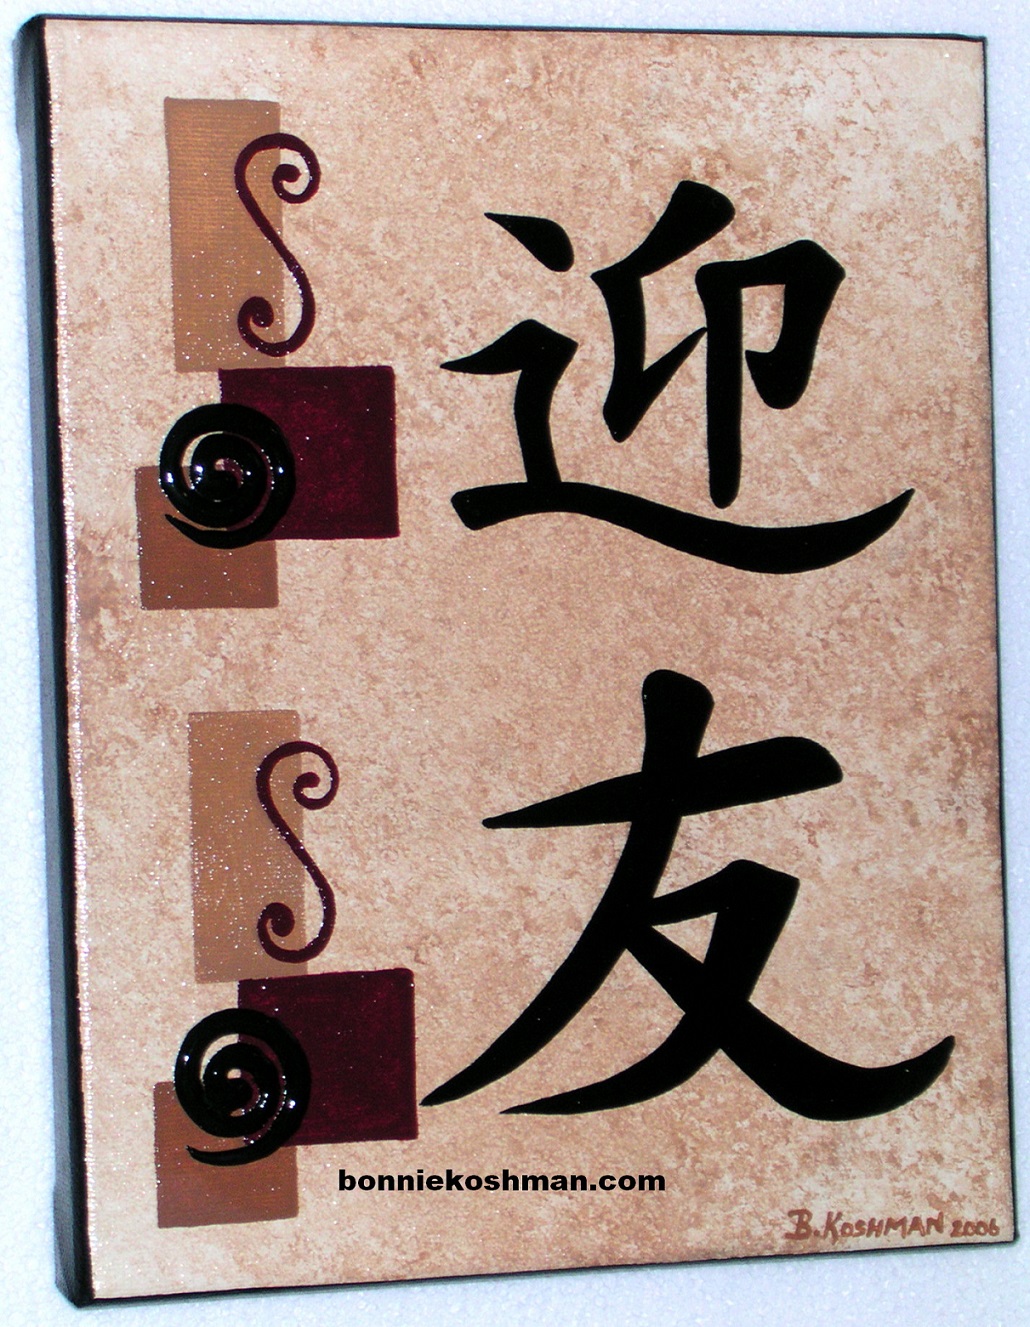 迎
友
bonniekoshman.com
B. KOSHMAN 2006